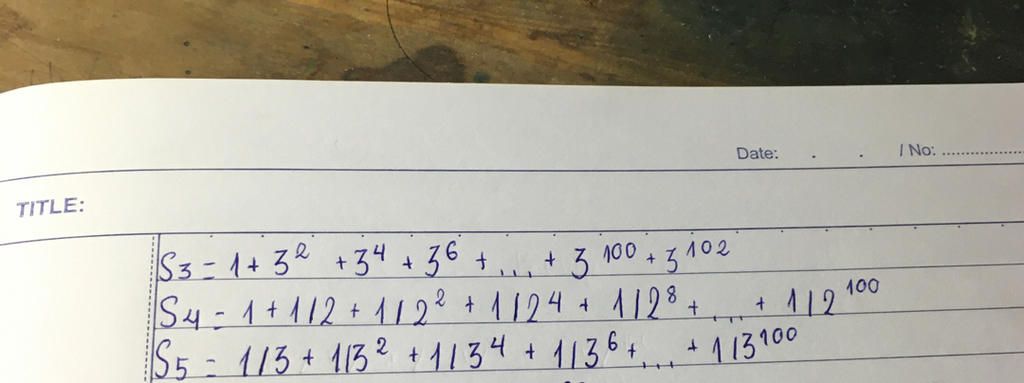 Date: . . / No: ....................
TITLE:
S3 = 1 + 3² + 3⁴ + 3⁶ + ... + 3¹⁰⁰ + 3¹⁰²
S4 = 1 + 1/2 + 1/2² + 1/2⁴ + 1/2⁸ + ... + 1/2¹⁰⁰
S5 = 1/3 + 1/3² + 1/3⁴ + 1/3⁶ + ... + 1/3¹⁰⁰